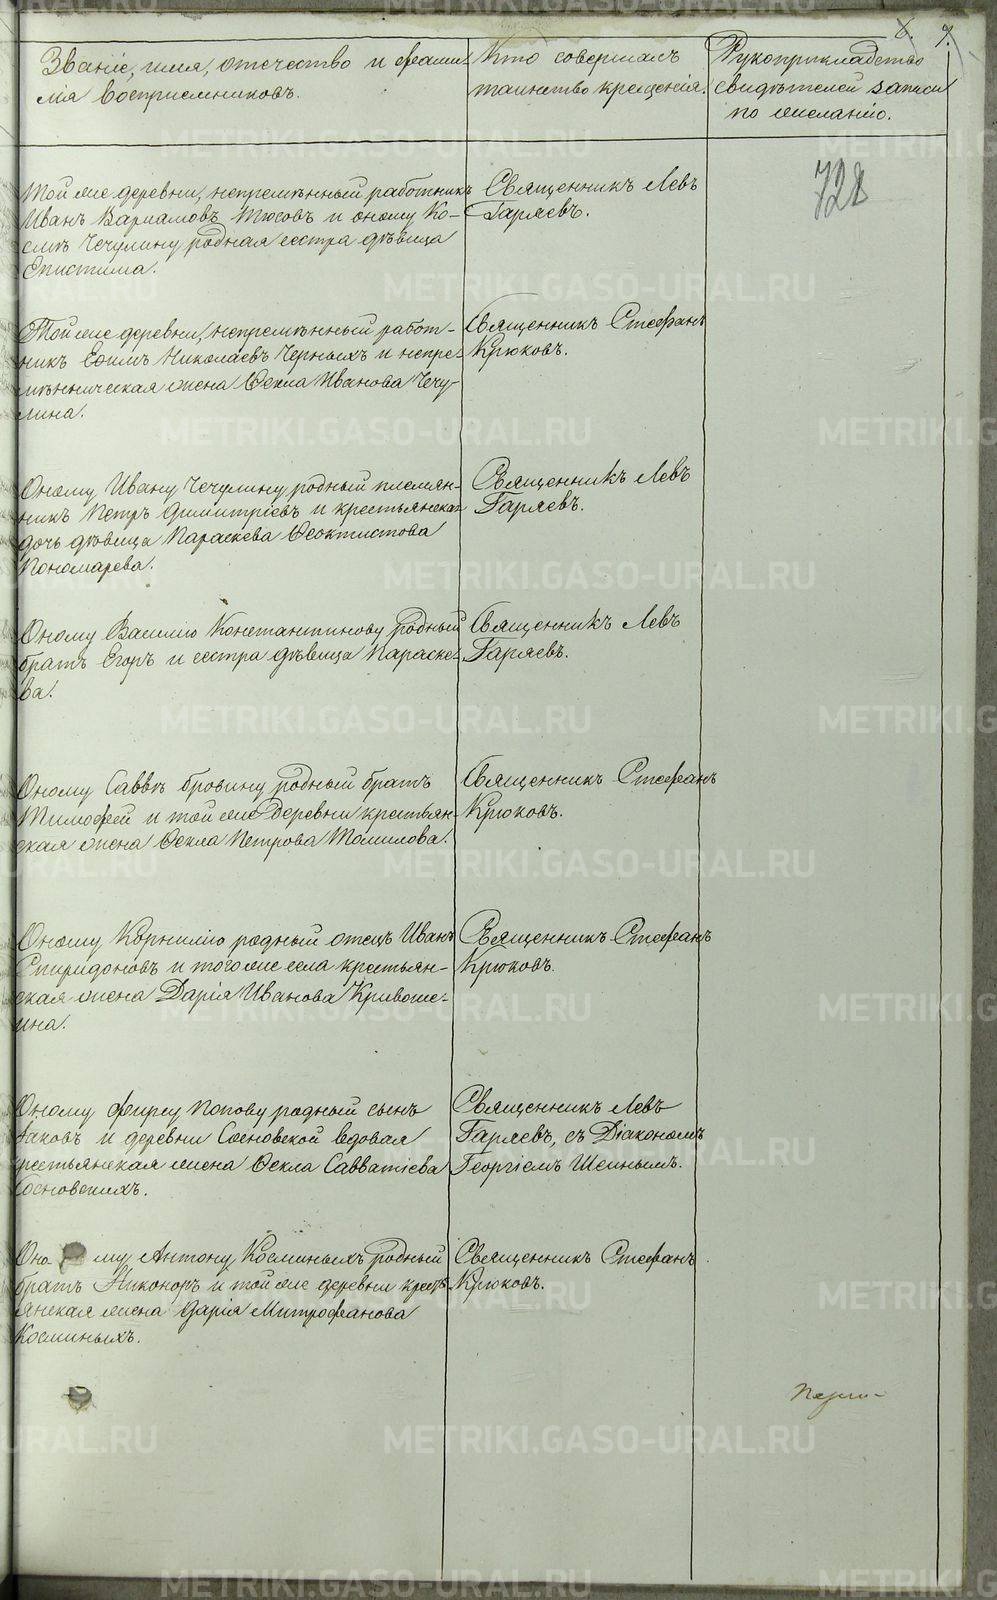 8. 7.
Званіе, имя, отчество и фами-
лія воспріемниковъ.
Кто совершалъ
таинство крещенія.
Рукоприкладство
свидѣтелей записи
по желанію.
728
Той же деревни, непремѣнный работникъ
Иванъ Варламовъ Тюсовъ и оному Ко-
смѣ Чечулину родная сестра дѣвица
Епистима.
Священникъ Левъ
Гаряевъ.
Той же деревни, непремѣнный работ-
никъ Ефимъ Николаевъ Черныхъ и непре-
мѣнническая жена Ѳекла Иванова Чечу-
лина.
Священникъ Стефанъ
Крюковъ.
Оному Ивану Чечулину родный племян-
никъ Петръ Димитріевъ и крестьянская
дочь дѣвица Параскева Ѳеоктистова
Пономарева.
Священникъ Левъ
Гаряевъ.
Оному Василію Константинову родный
братъ Егоръ и сестра дѣвица Параске-
ва.
Священникъ Левъ
Гаряевъ.
Оному Саввѣ Бровину родный братъ
Тимофей и той же деревни крестьян-
ская жена Ѳекла Петрова Томилова.
Священникъ Стефанъ
Крюковъ.
Оному Корнилію родный отецъ Иванъ
Спиридоновъ и того же села крестьян-
ская жена Дарія Иванова Кривоше-
ина.
Священникъ Стефанъ
Крюковъ.
Оному Фирсу Попову родный сынъ
Іаковъ и деревни Сосновской вдовая
крестьянская жена Ѳекла Савватіева
Сосновскихъ.
Священникъ Левъ
Гаряевъ, съ Діакономъ
Георгіемъ Шеиным.
Оно му Антону Косминыхъ родный
братъ Никоноръ и той же деревни крест-
янская жена Дарія Митрофанова
Косминыхъ.
Священникъ Стефанъ
Крюковъ.
METRIKI.GASO-URAL.RU